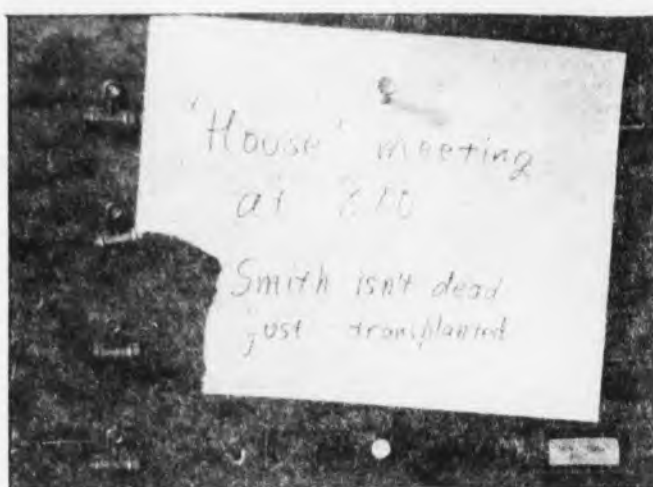 'House' meeting
at 8:00
Smith isn't dead
just transplanted